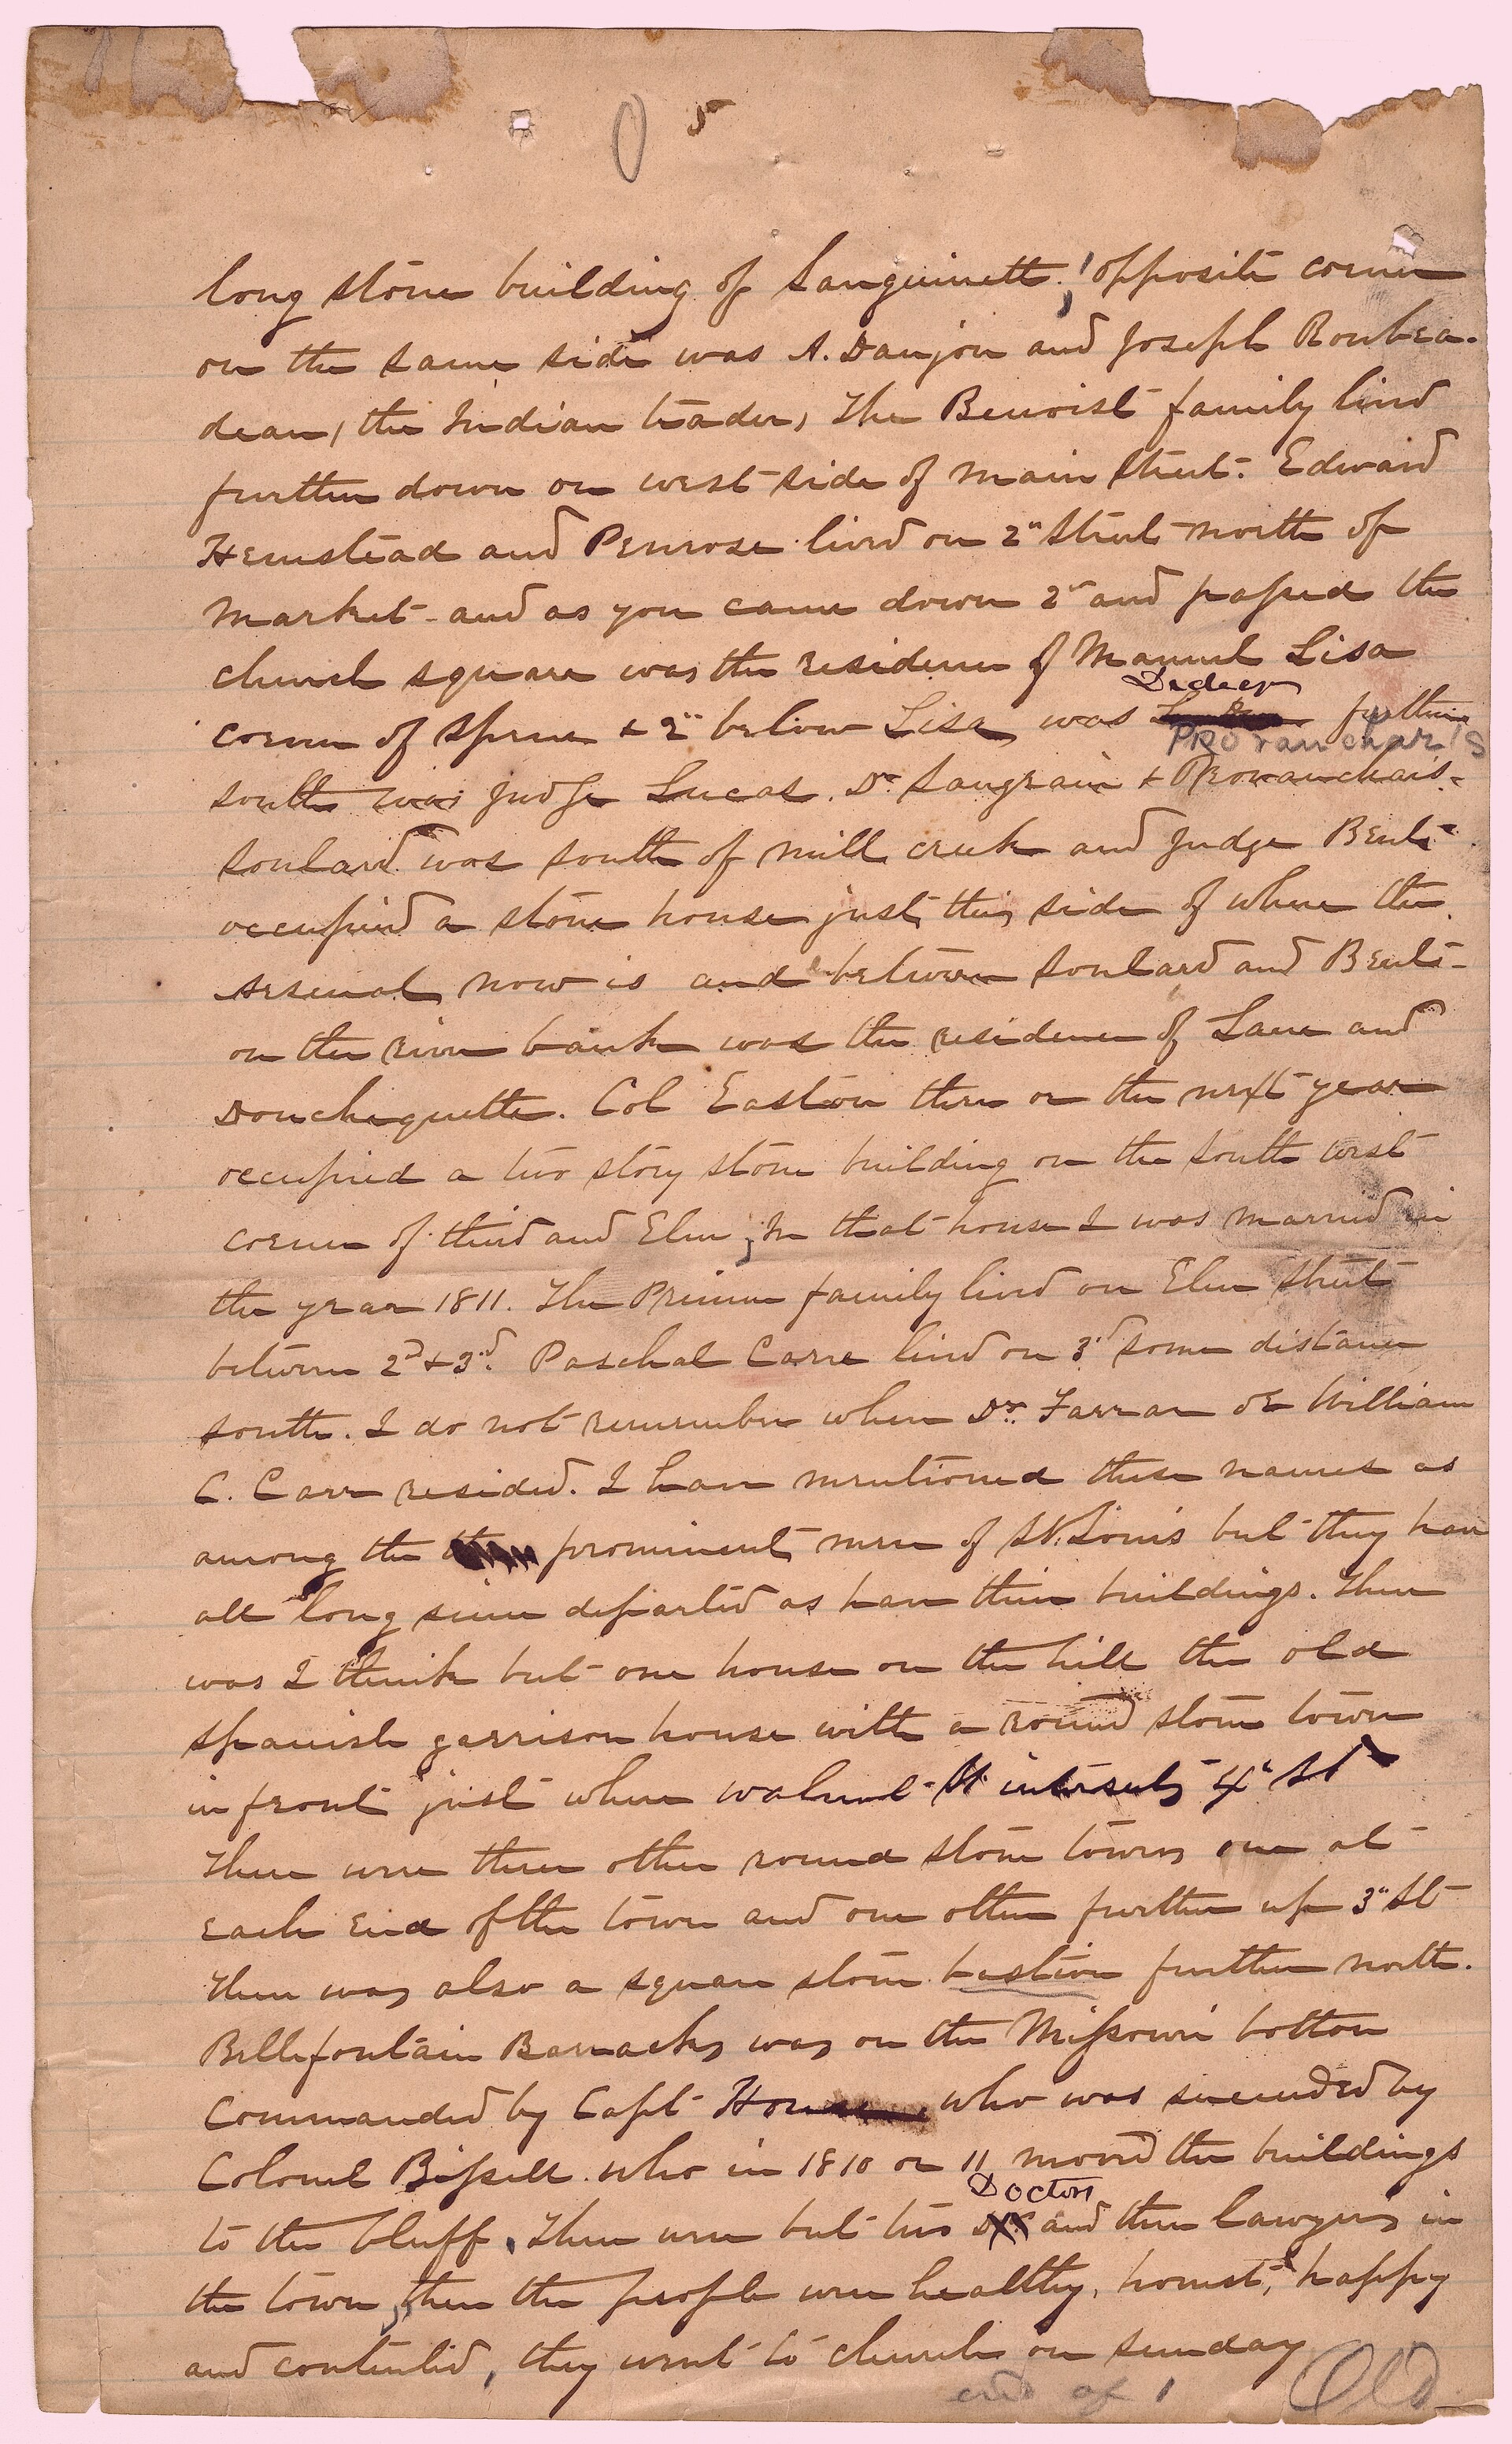 5
long stone building of Sanguinett. opposite corner
on the same side was A. Danjon and Joseph Roubea-
deau, the Indian trader, The Benoist family lived
further down on west side of main Street. Edward
Hemstead and Penrose lived on 2" Street north of
Market - and as you came down 2nd and passed the
church square was the residence of Manuel Lisa
corner of Spruce & 2" below Lisa, was further
south was Judge Lucas. Dr Saugrain & Provanchais.
Soulard was south of mill creek and Judge Bent
occupied a stone house just this side of where the
Arsenal now is and between Soulard and Bent
on the river bank was the residence of Lane and
Douchequette. Col Easton then or the next year
occupied a two story stone building on the south west
corner of third and Elm; In that house I was married in
the year 1811. The Primm family lived on Elm Street
between 2d & 3rd. Paschal Carre lived on 3d some distance
south. I do not remember where Dr. Farrar or William
C. Carr resided. I have mentioned these names as
among the prominent men of St. Louis but they have
all long since departed as have their buildings. There
was I think but one house on the hill the old
Spanish garrison house with a round stone tower
in front just where walnut St intersects 4" St
There were three other round stone towers one at
each end of the town and one other further up 3" St
There was also a square stone bastion further north.
Bellefontain Barracks was on the Missouri bottom
Commanded by Capt House who was succeeded by
Colonel Bissell who in 1810 or 11 moved the buildings
Doctors
to the bluff. There were but two and three lawyers in
the town, then the people were healthy, honest, happy
and contented, they went to church on Sunday
end of 1 Old